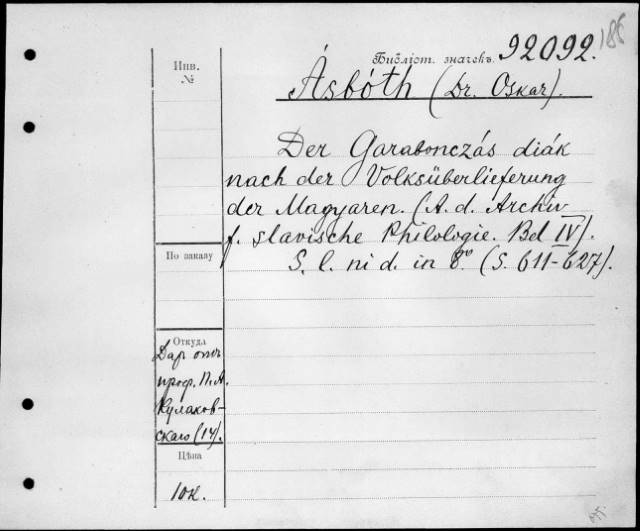 186
Библіот. значекъ. 92092.
Инв.
№
Ásbóth (Dr. Oskar).
Der Garabonczás diák
nach der Volksüberlieferung
der Magyaren. (A. d. Archiv
f. slavische Philologie. Bd IV).
S. l. ni d. in 8º. (S. 611-627).
По заказу
Откуда
Даръ отъ
проф. П. А.
Кулаков-
скаго (14).
Цѣна
10 к.